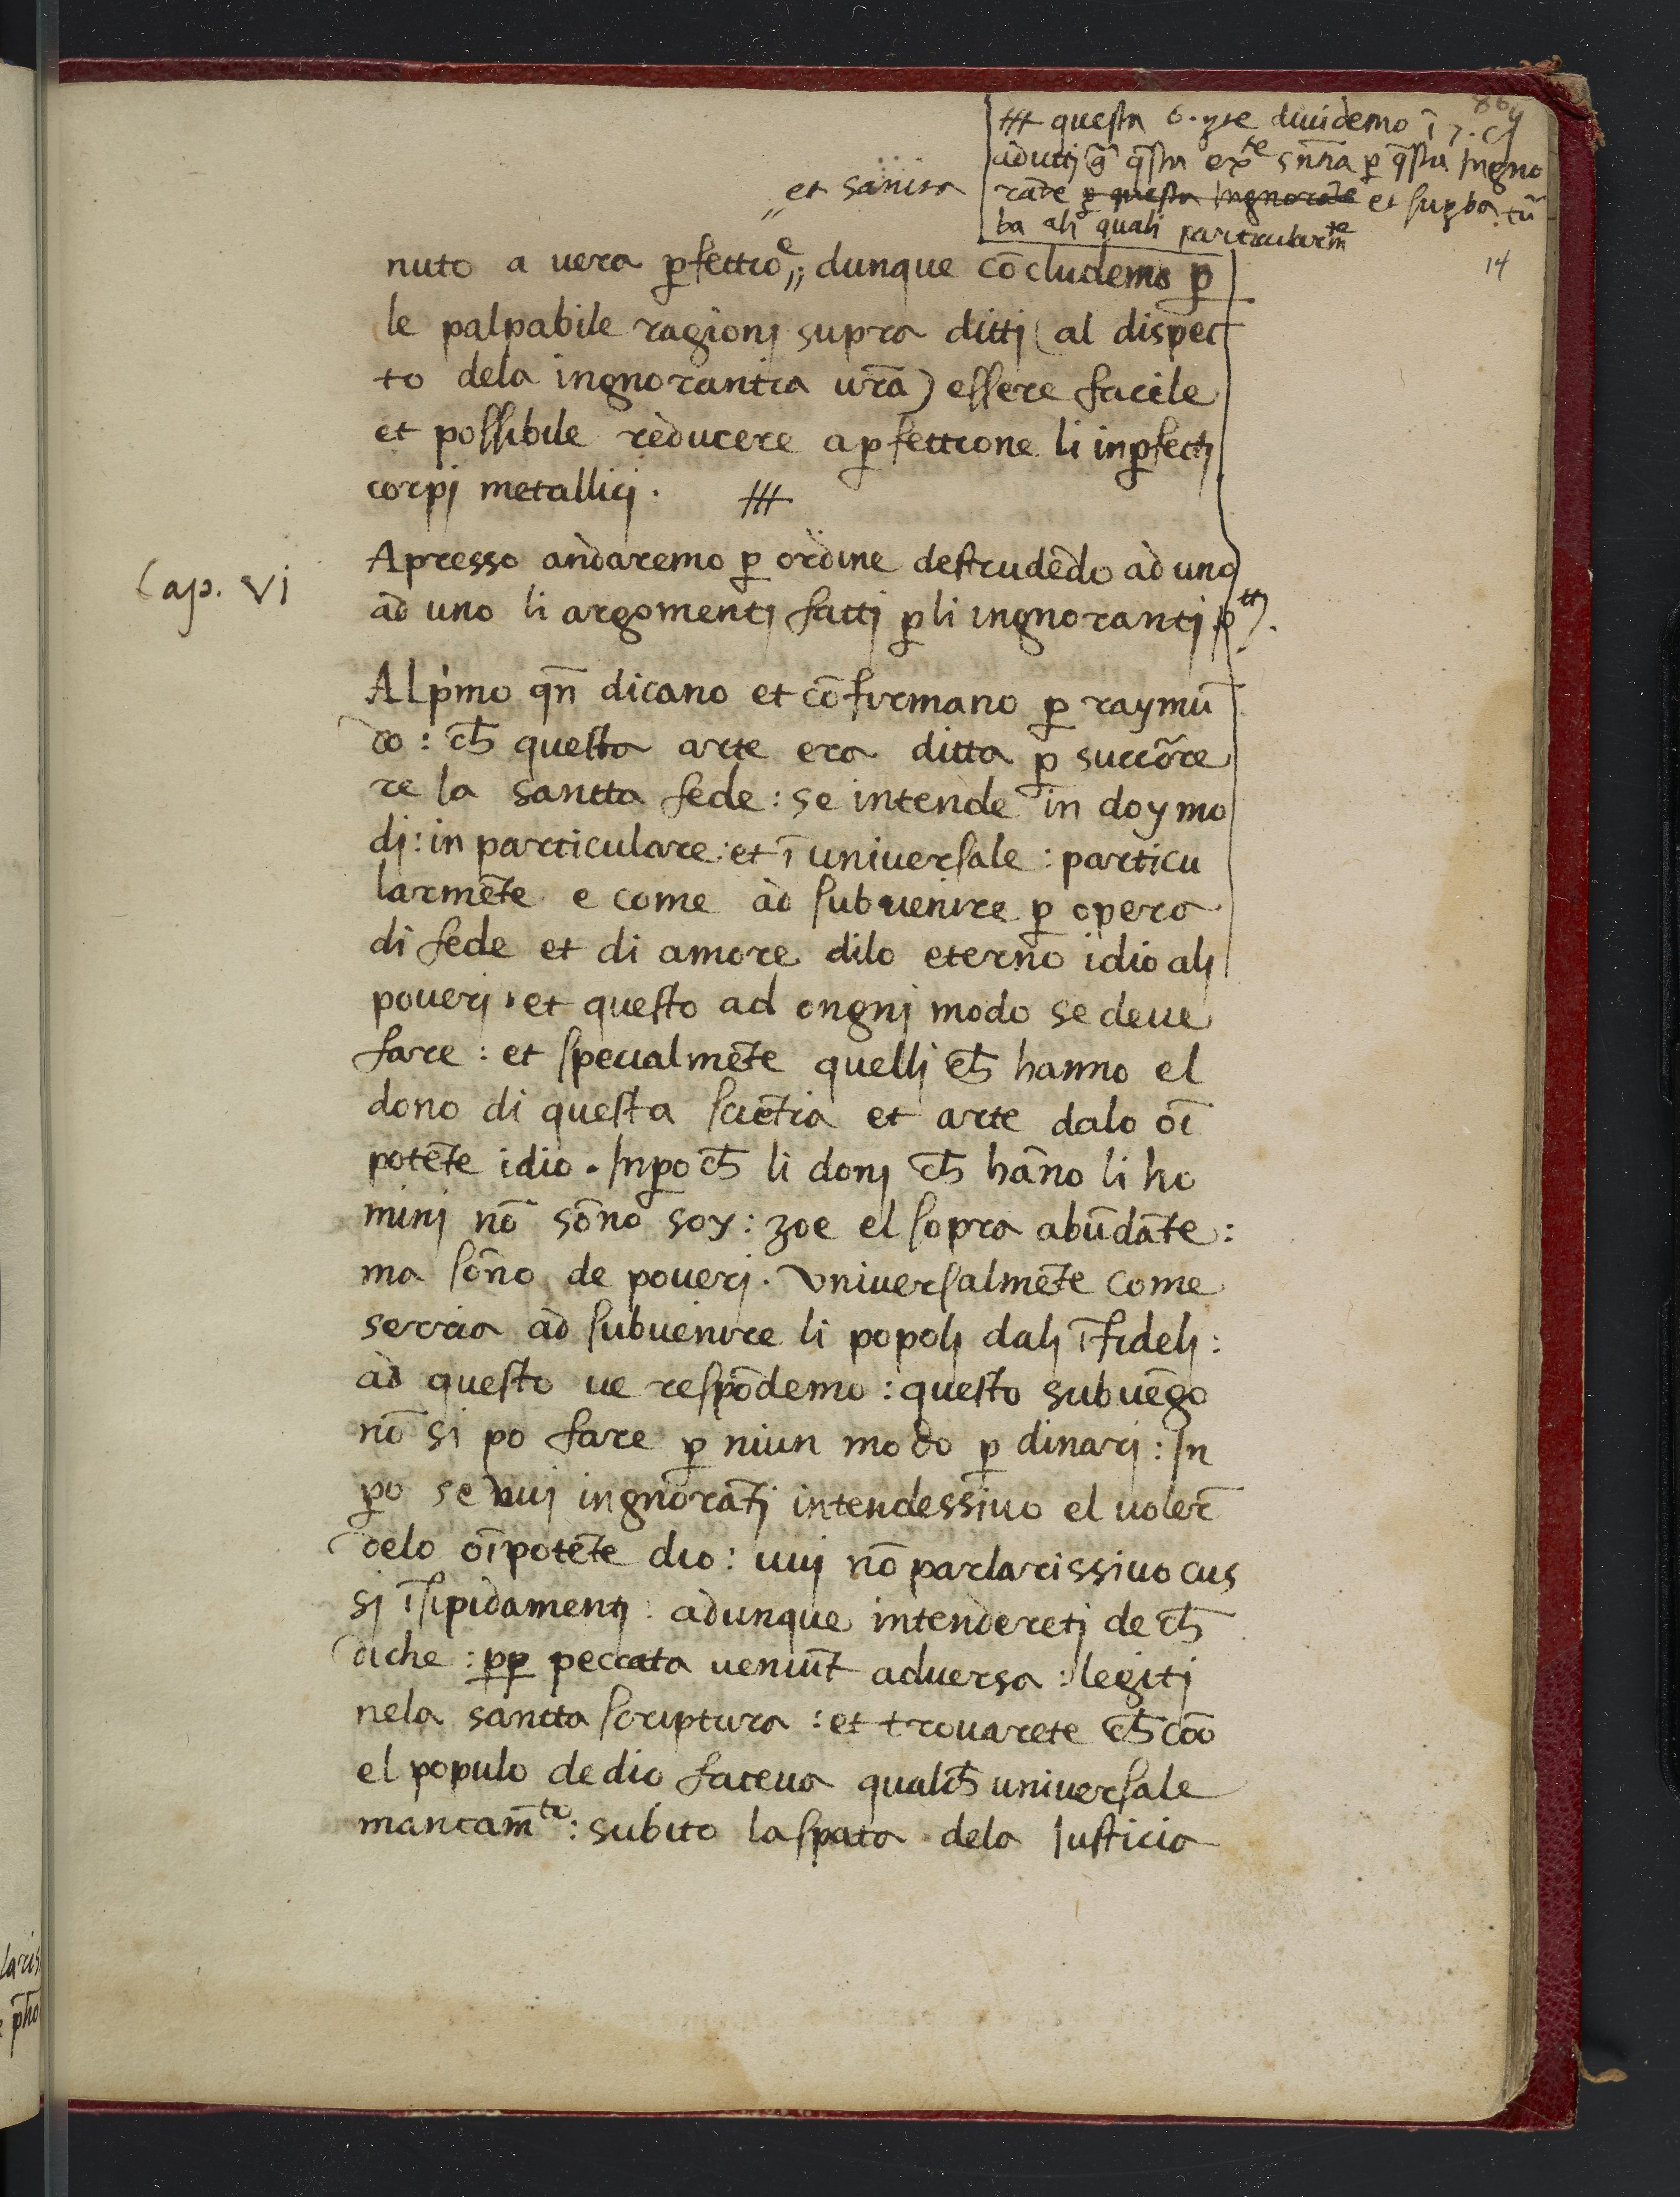 ⧻ questa 6. pte diuidemo ī 7. c
adutti q̄sta exte snīa p q̄sta Ingno
rāte p questa Ingnorāte et supba tū
ba ali quali particularmte
14
„ et sanita
nuto a uera pfettioe„; dunque cōcludemo p
le palpabile ragionj supra dittj (al dispec
to dela ingnorantia urā) essere facile
et possibile reducere a pfettione li inpfectj
corpj metallicj. ⧻
Cap. VI
Apresso andaremo p ordine destrudēdo ad uno
ad uno li argomentj fattj p li ingnorantj ptj.
Al pimo qn̄ dicano et cōfirmano p raymū
do: ch questa arte era ditta p succōre
re la santta fede: se intende in doy mo
dj: in particulare: et ī uniuersale: particu
larmēte e come ad subuenire p opera
di fede et di amore dilo eterno idio alj
pouerj. et questo ad ongnj modo se deue
fare: et specialmēte quellj ch hanno el
dono di questa sciētia et arte dalo oī
potēte idio. Inpo ch li donj ch hāno li ho
minj nō sōno soy: zoe el sopra abūdāte:
ma sōno de pouerj. Vniuersalmēte come
serria ad subuenire li popolj dalj īfidelj:
ad questo ue respōdemo: questo subuēgo
nō si po fare p niun modo p dinarj: In
po se vuj ingnorātj intendessiuo el uolerē
delo oīpotēte dio: uuj nō parlarissiuo cus
sj īsipidamentj: adunque intenderetj de ch
diche: pp peccata ueniūt aduersa: legitj
nela santta scriptura: et trouarete ch cōo
el populo de dio faceua qualch uniuersale
mancam̄to: subito la spata dela Justicia